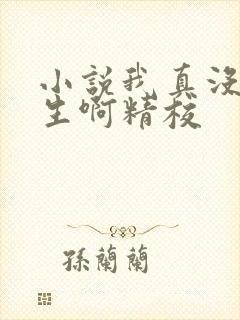 小説我真没
生啊精校
孫蘭蘭